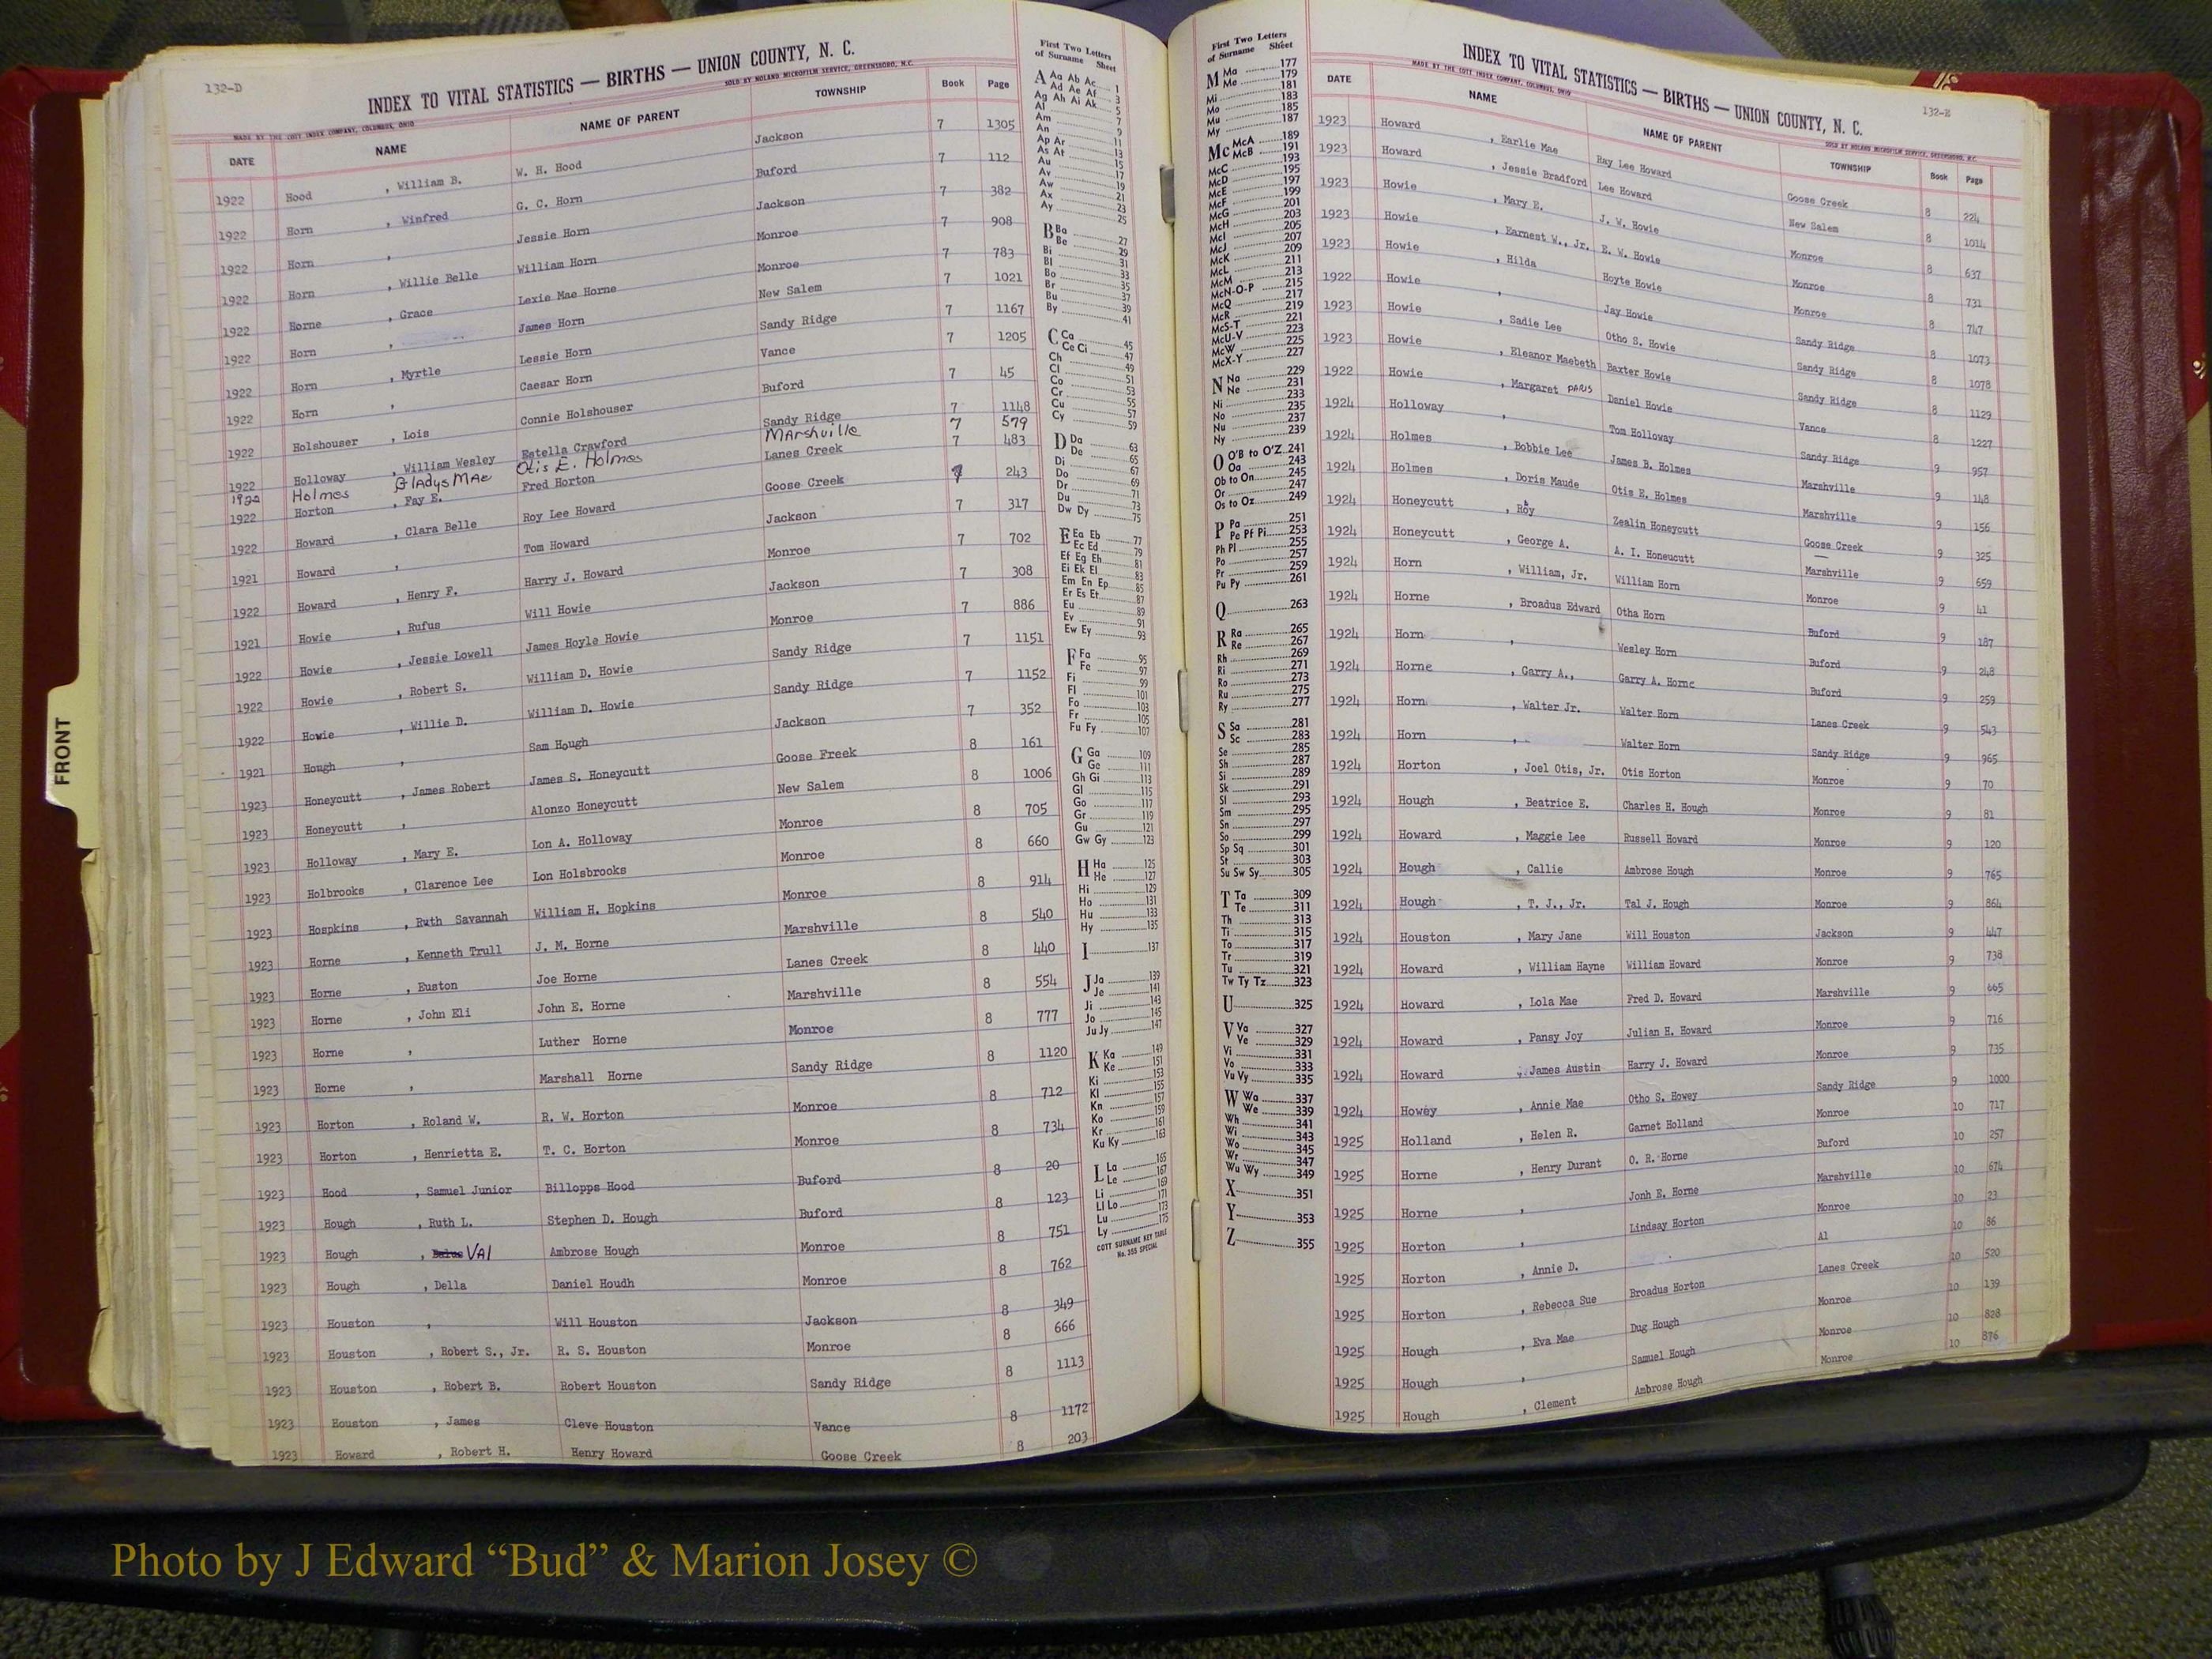 132-D
INDEX TO VITAL STATISTICS — BIRTHS — UNION COUNTY, N. C.
MADE BY THE COTT INDEX COMPANY, COLUMBUS, OHIO SOLD BY NOLAND MICROFILM SERVICE, GREENSBORO, N.C.
DATE NAME NAME OF PARENT TOWNSHIP Book Page
1922 Hood , William B. W. H. Hood Jackson 7 1305
1922 Horn , Winfred G. C. Horn Buford 7 112
1922 Horn , Jessie Horn Jackson 7 382
1922 Horn , Willie Belle William Horn Monroe 7 908
1922 Horne , Grace Lexie Mae Horne Monroe 7 783
1922 Horn , James Horn New Salem 7 1021
1922 Horn , Myrtle Lessie Horn Sandy Ridge 7 1167
1922 Horn , Caesar Horn Vance 7 1205
1922 Holshouser , Lois Connie Holshouser Buford 7 45
1922 Holloway , William Wesley Estella Crawford Sandy Ridge 7 1148
1922 Holmes Gladys MAe Otis E. Holmes MArshville 7 579
1922 Horton , Fay E. Fred Horton Lanes Creek 7 483
1922 Howard , Clara Belle Roy Lee Howard Goose Creek 7 243
1921 Howard , Tom Howard Jackson 7 317
1922 Howard , Henry F. Harry J. Howard Monroe 7 702
1921 Howie , Rufus Will Howie Jackson 7 308
1922 Howie , Jessie Lowell James Hoyle Howie Monroe 7 886
1922 Howie , Robert S. William D. Howie Sandy Ridge 7 1151
1922 Howie , Willie D. William D. Howie Sandy Ridge 7 1152
1921 Hough , Sam Hough Jackson 7 352
1923 Honeycutt , James Robert James S. Honeycutt Goose Freek 8 161
1923 Honeycutt , Alonzo Honeycutt New Salem 8 1006
1923 Holloway , Mary E. Lon A. Holloway Monroe 8 705
1923 Holbrooks , Clarence Lee Lon Holsbrooks Monroe 8 660
1923 Hospkins , Ruth Savannah William H. Hopkins Monroe 8 914
1923 Horne , Kenneth Trull J. M. Horne Marshville 8 540
1923 Horne , Euston Joe Horne Lanes Creek 8 440
1923 Horne , John Eli John E. Horne Marshville 8 554
1923 Horne , Luther Horne Monroe 8 777
1923 Horne , Marshall Horne Sandy Ridge 8 1120
1923 Horton , Roland W. R. W. Horton Monroe 8 712
1923 Horton , Henrietta E. T. C. Horton Monroe 8 734
1923 Hood , Samuel Junior Billopps Hood Buford 8 20
1923 Hough , Ruth L. Stephen D. Hough Buford 8 123
1923 Hough , VAl Ambrose Hough Monroe 8 751
1923 Hough , Della Daniel Houdh Monroe 8 762
1923 Houston , Will Houston Jackson 8 349
1923 Houston , Robert S., Jr. R. S. Houston Monroe 8 666
1923 Houston , Robert B. Robert Houston Sandy Ridge 8 1113
1923 Houston , James Cleve Houston Vance 8 1172
1923 Howard , Robert H. Henry Howard Goose Creek 8 203
First Two Letters
of Surname Sheet
A Aa Ab Ac 1
Ad Ae Af 3
Ag Ah Ai Ak 5
Al 7
Am 9
An 11
Ap Ar 13
As At 15
Au 17
Av 19
Aw 21
Ax 23
Ay 25
B Ba 27
Be 29
Bi 31
Bl 33
Bo 35
Br 37
Bu 39
By 41
C Ca 45
Ce Ci 47
Ch 49
Cl 51
Co 53
Cr 55
Cu 57
Cy 59
D Da 63
De 65
Di 67
Do 69
Dr 71
Du 73
Dw Dy 75
E Ea Eb 77
Ec Ed 79
Ef Eg Eh 81
Ei Ek El 83
Em En Ep 85
Er Es Et 87
Eu 89
Ev 91
Ew Ey 93
F Fa 95
Fe 97
Fi 99
Fl 101
Fo 103
Fr 105
Fu Fy 107
G Ga 109
Ge 111
Gh Gi 113
Gl 115
Go 117
Gr 119
Gu 121
Gw Gy 123
H Ha 125
He 127
Hi 129
Ho 131
Hu 133
Hy 135
I 137
J Ja 139
Je 141
Ji 143
Jo 145
Ju Jy 147
K Ka 149
Ke 151
Ki 153
Kl 155
Kn 157
Ko 159
Kr 161
Ku Ky 163
L La 165
Le 167
Li 169
Ll Lo 171
Lu 173
Ly 175
COTT SURNAME KEY TABLE
No. 355 SPECIAL
First Two Letters
of Surname Sheet
M Ma 177
Me 179
Mi 181
Mo 183
Mu 185
My 187
Mc McA 189
McB 191
McC 193
McD 195
McE 197
McF 199
McG 201
McH 203
McI 205
McJ 207
McK 209
McL 211
McM 213
McN-O-P 215
McQ 217
McR 219
McS-T 221
McU-V 223
McW 225
McX-Y 227
N Na 229
Ne 231
Ni 233
No 235
Nu 237
Ny 239
O O'B to O'Z 241
Oa 243
Ob to On 245
Or 247
Os to Oz 249
P Pa 251
Pe Pf Pi 253
Ph Pl 255
Po 257
Pr 259
Pu Py 261
Q 263
R Ra 265
Re 267
Rh 269
Ri 271
Ro 273
Ru 275
Ry 277
S Sa 281
Sc 283
Se 285
Sh 287
Si 289
Sk 291
Sl 293
Sm 295
Sn 297
So 299
Sp Sq 301
St 303
Su Sw Sy 305
T Ta 309
Te 311
Th 313
Ti 315
To 317
Tr 319
Tu 321
Tw Ty Tz 323
U 325
V Va 327
Ve 329
Vi 331
Vo 333
Vu Vy 335
W Wa 337
We 339
Wh 341
Wi 343
Wo 345
Wr 347
Wu Wy 349
X 351
Y 353
Z 355
132-E
INDEX TO VITAL STATISTICS — BIRTHS — UNION COUNTY, N. C.
MADE BY THE COTT INDEX COMPANY, COLUMBUS, OHIO SOLD BY NOLAND MICROFILM SERVICE, GREENSBORO, N.C.
DATE NAME NAME OF PARENT TOWNSHIP Book Page
1923 Howard , Earlie Mae Ray Lee Howard Goose Creek 8 224
1923 Howard , Jessie Bradford Lee Howard New Salem 8 1014
1923 Howie , Mary E. J. W. Howie Monroe 8 637
1923 Howie , Earnest W., Jr. E. W. Howie Monroe 8 731
1923 Howie , Hilda Hoyte Howie Monroe 8 747
1922 Howie , Jay Howie Sandy Ridge 8 1073
1923 Howie , Sadie Lee Otho S. Howie Sandy Ridge 8 1078
1923 Howie , Eleanor Maebeth Baxter Howie Sandy Ridge 8 1129
1922 Howie , Margaret PARIS Daniel Howie Vance 8 1227
1924 Holloway , Tom Holloway Sandy Ridge 9 957
1924 Holmes , Bobbie Lee James B. Holmes Marshville 9 148
1924 Holmes , Doris Maude Otis E. Holmes Marshville 9 156
1924 Honeycutt , Roy Zealin Honeycutt Goose Creek 9 325
1924 Honeycutt , George A. A. I. Honeucutt Marshville 9 659
1924 Horn , William, Jr. William Horn Monroe 9 41
1924 Horne , Broadus Edward Otha Horn Buford 9 187
1924 Horn , Wesley Horn Buford 9 248
1924 Horne , Garry A., Garry A. Horne Buford 9 259
1924 Horn , Walter Jr. Walter Horn Lanes Creek 9 543
1924 Horn , Walter Horn Sandy Ridge 9 965
1924 Horton , Joel Otis, Jr. Otis Horton Monroe 9 70
1924 Hough , Beatrice E. Charles H. Hough Monroe 9 81
1924 Howard , Maggie Lee Russell Howard Monroe 9 120
1924 Hough , Callie Ambrose Hough Monroe 9 765
1924 Hough , T. J., Jr. Tal J. Hough Monroe 9 864
1924 Houston , Mary Jane Will Houston Jackson 9 447
1924 Howard , William Hayne William Howard Monroe 9 738
1924 Howard , Lola Mae Fred D. Howard Marshville 9 665
1924 Howard , Pansy Joy Julian H. Howard Monroe 9 716
1924 Howard , James Austin Harry J. Howard Monroe 9 735
1924 Howey , Annie Mae Otho S. Howey Sandy Ridge 9 1000
1925 Holland , Helen R. Garnet Holland Monroe 10 717
1925 Horne , Henry Durant O. R. Horne Buford 10 257
1925 Horne , Jonh E. Horne Marshville 10 674
1925 Horton , Lindsay Horton Monroe 10 23
1925 Horton , Annie D. Al 10 86
1925 Horton , Rebecca Sue Broadus Horton Lanes Creek 10 520
1925 Hough , Eva Mae Dug Hough Monroe 10 139
1925 Hough , Samuel Hough Monroe 10 828
1925 Hough , Clement Ambrose Hough Monroe 10 876
FRONT
Photo by J Edward “Bud” & Marion Josey ©